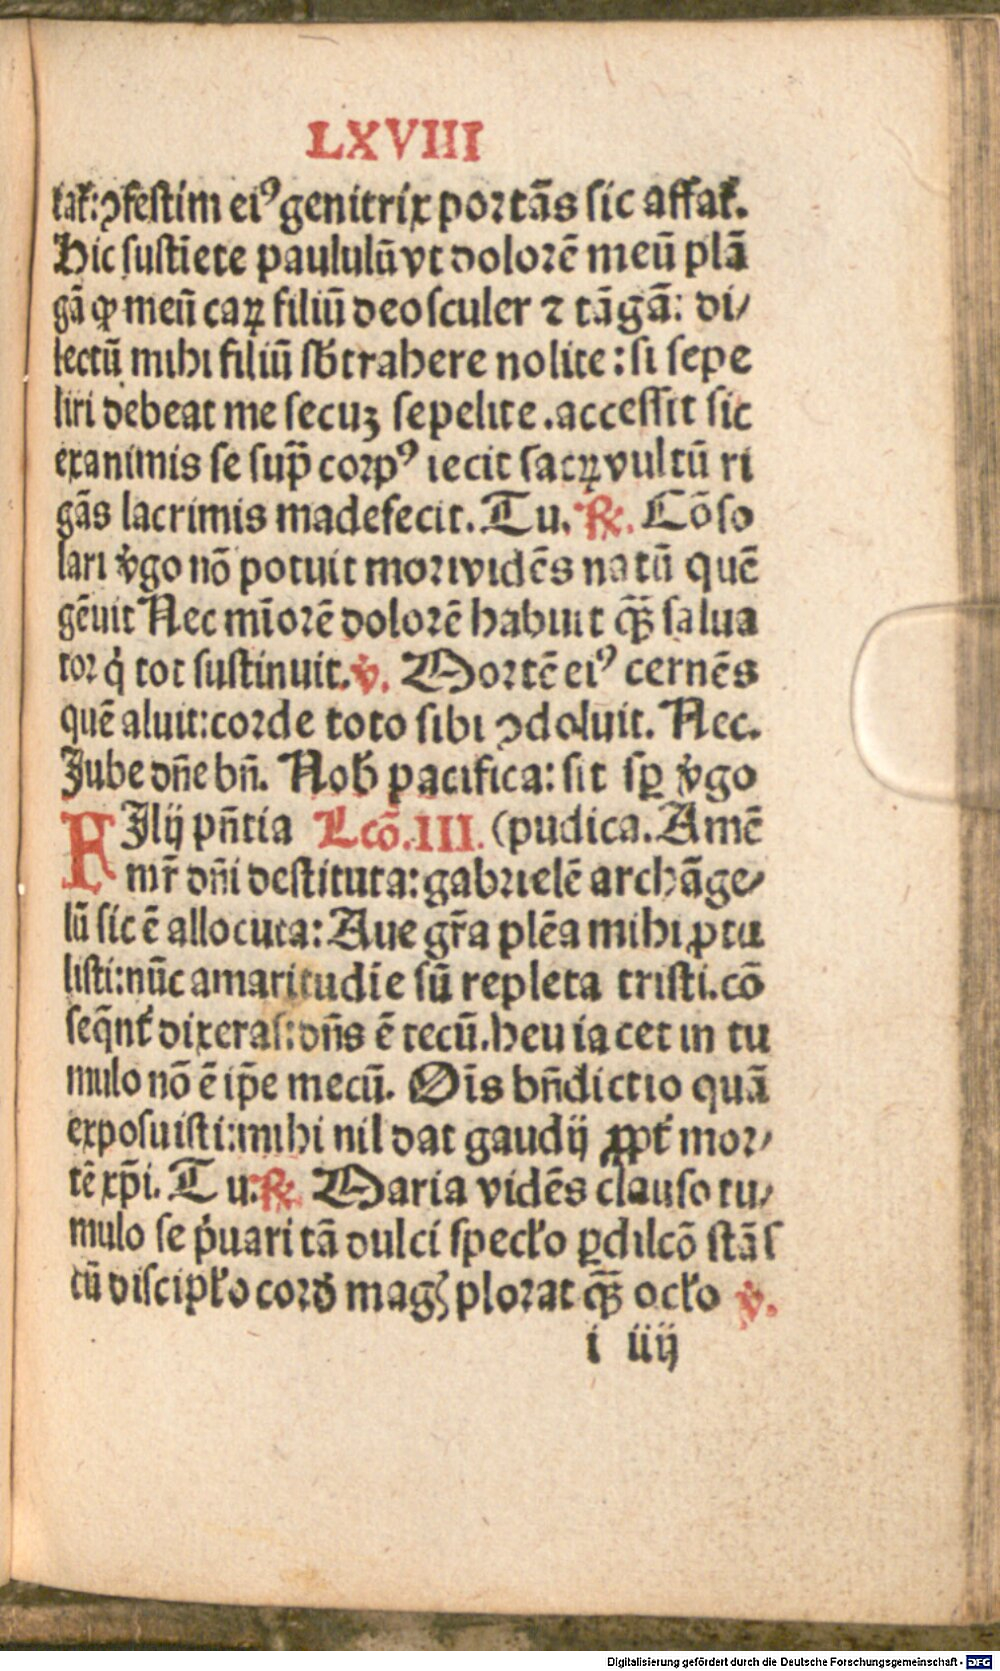 LXVIII
tať: ꝯfestim eiꝰ genitrix portãs sic affať.
Hic sustīete paululũ vt dolorē meũ plã
gã ꝙ meũ caꝝ filiũ deosculer ⁊ tãgã: di/
lectũ mihi filiũ sƀtrahere nolite: si sepe
liri debeat me secuꝫ sepelite. accessit sic
exanimis se sup̃ corpꝰ iecit sacꝝ vultũ ri
gãs lacrimis madefecit. Tu. ℟. Cõso
lari v̾go nõ potuit mori vidēs natũ quē
gēuit Nec mīorē dolorē habuit ꝙ̃ salua
tor q̇ tot sustinuit. ℣. Mortē eiꝰ cernēs
quē aluit: corde toto sibi ꝯdoluit. Nec.
Jube dñe bñ. Nob̾ pacifica: sit sꝑ v̾go
FJlij pñtia Lcõ. III. (pudica. Amē
mr̃ dñi destituta: gabrielē archãge/
lũ sic ē allocuta: Aue gr̃a plēa mihi ꝓtu
listi: nũc amaritudīe sũ repleta tristi. cõ
seq̃nť dixeras: dñs ē tecũ. heu iacet in tu
mulo nõ ē ip̃e mecũ. Oīs bñdictio quã
exposuisti: mihi nil dat gaudij ꝓpť mor/
tē xp̃i. Tu. ℟. Maria vidēs clauso tu/
mulo se ṗuari tã dulci specło ꝑdilcõ stãs
cũ discipło cord̾ magꝭ plorat ꝙ̃ ocło ℣.
i iiij
Digitalisierung gefördert durch die Deutsche Forschungsgemeinschaft - DFG